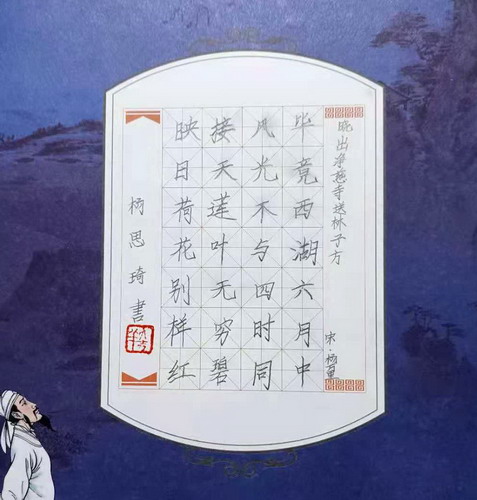 晓出净慈寺送林子方
宋 杨万里
毕竟西湖六月中
风光不与四时同
接天莲叶无穷碧
映日荷花别样红
杨思琦書